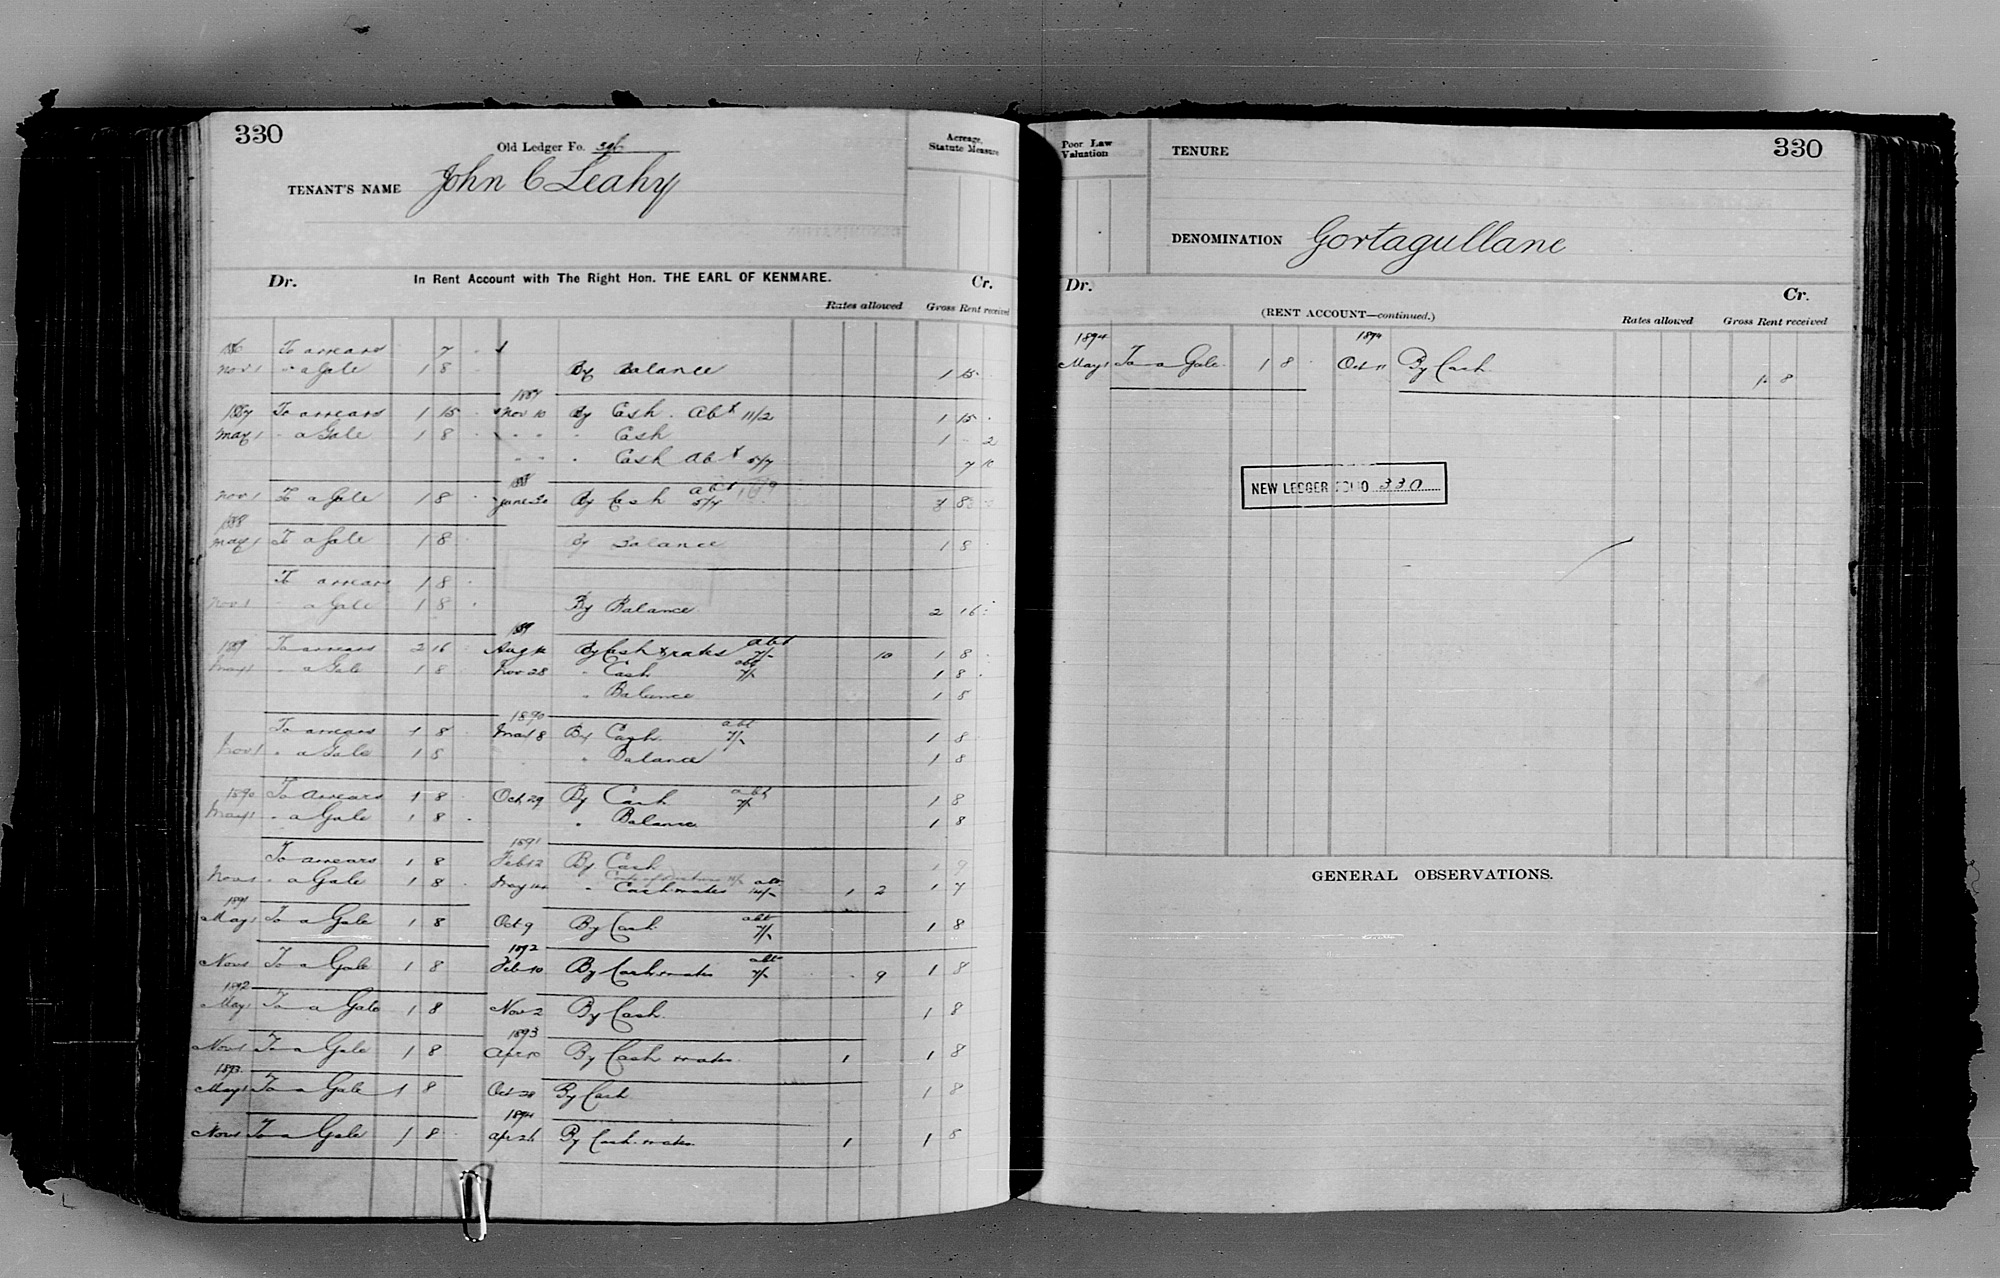 330
Old Ledger Fo.
TENANT'S NAME John C Leahy
Acreage, Statute Measure
Dr. In Rent Account with The Right Hon. THE EARL OF KENMARE. Cr.
Rates allowed Gross Rent received
To arrears 7
Nov 1 " a Gale 1 8 By Balance 1 15
1887
1887 To arrears 1 15 Nov 10 By Cash Abt 11/2 1 15
May 1 " a Gale 1 8 " " " Cash 1 - 2
" " " Cash Abt 5/7 7 10
1888
Nov 1 To a Gale 1 8 June 30 By Cash abt 5/7
1888
May 1 To a Gale 1 8 By Balance 1 8
To arrears 1 8
Nov 1 " a Gale 1 8 By Balance 2 16
1889
1889 To arrears 2 16 Aug By Cash & rates abt 7/- 10 1 8
May 1 " a Gale 1 8 Nov 28 " Cash abt 7/- 1 8
" Balance 1 8
1890
To arrears 1 8 Mar 18 By Cash abt 7/- 1 8
Nov 1 " a Gale 1 8 " Balance 1 8
1890 To arrears 1 8 Oct 29 By Cash abt 7/- 1 8
May 1 " a Gale 1 8 " Balance 1 8
1891
To arrears 1 8 Feb 12 By Cash 1 9
Nov 1 " a Gale 1 8 May 14 " Cash & rates abt 14/- 1 2 1 7
1891
May 1 To a Gale 1 8 Oct 9 By Cash abt 7/- 1 8
1892
Nov 1 To a Gale 1 8 Feb 10 By Cash & rates abt 7/- 9 1 8
1892
May 1 To a Gale 1 8 Nov 2 By Cash 1 8
1893
Nov 1 To a Gale 1 8 Apr 10 By Cash & rates 1 1 8
1893
May 1 To a Gale 1 8 Oct 28 By Cash 1 8
1894
Nov 1 To a Gale 1 8 Apr 26 By Cash & rates 1 1 8
Poor Law Valuation
TENURE
330
DENOMINATION Gortagullane
Dr. Cr.
(RENT ACCOUNT—continued.)
Rates allowed Gross Rent received
1894 1894
May 1 To a Gale 1 8 Oct 11 By Cash 1 8
NEW LEDGER FOLIO 330
GENERAL OBSERVATIONS.